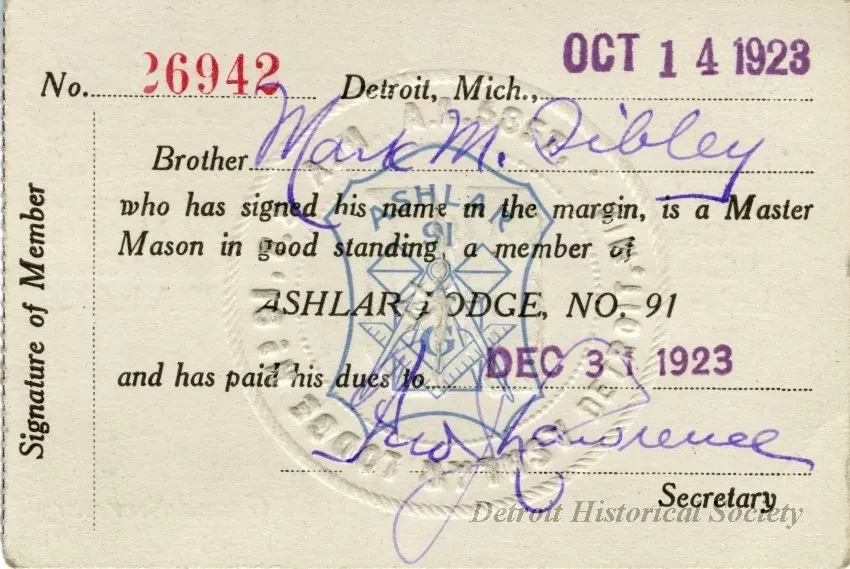 OCT 14 1923
No. 26942 Detroit, Mich.,
Brother Mark M. Sibley
who has signed his name in the margin, is a Master
Mason in good standing, a member of
ASHLAR LODGE, NO. 91
and has paid his dues to DEC 31 1923
Lawrence
Secretary
Signature of Member
ASHLAR
91
G
Detroit Historical Society